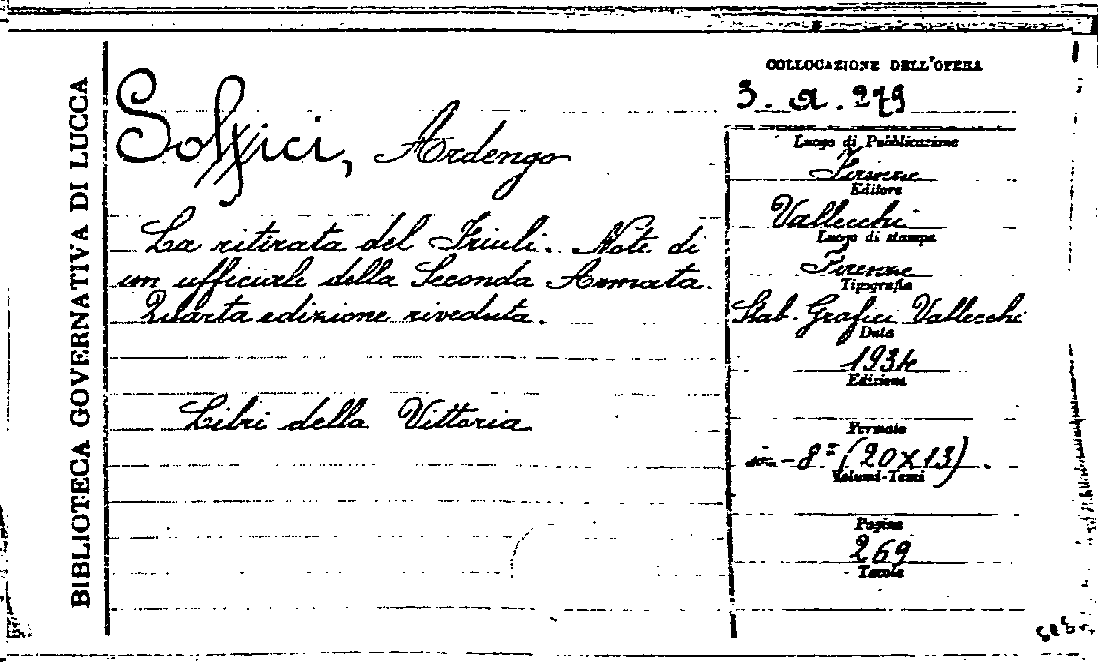 BIBLIOTECA GOVERNATIVA DI LUCCA
COLLOCAZIONE DELL'OPERA
3. a. 279
Soffici, Ardengo
La ritirata del Friuli. Note di
un ufficiale della Seconda Armata.
Quarta edizione riveduta.
Libri della Vittoria
Luogo di Pubblicazione
Firenze
Editore
Vallecchi
Luogo di stampa
Firenze
Tipografia
Stab. Grafici Vallecchi
Data
1934
Edizione
Formato
in-8° (20x13).
Volumi-Tomi
Pagine
269
Tavole